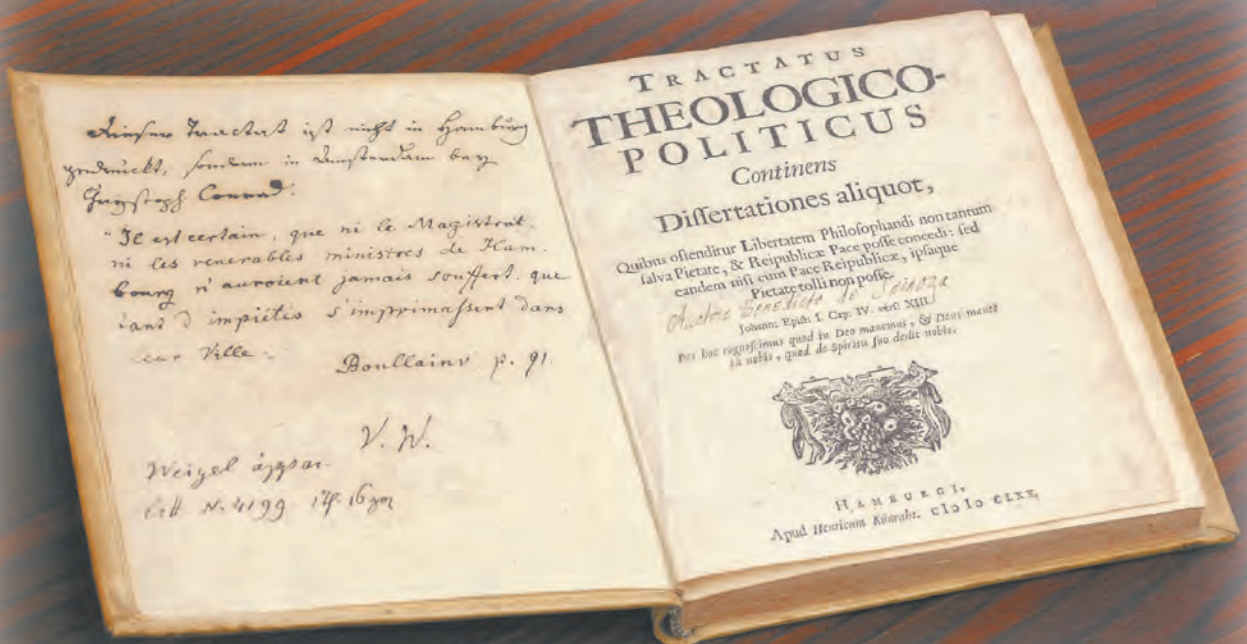 Dieser Tractat ist nicht in Hamburg
gedruckt, sondern in Amsterdam bey
Christoph Conrad.
"Il est certain, que ni le Magistrat.
ni les venerables ministres de Ham-
bourg n'auroient jamais souffert. que
tant d'impiétés s'imprimassent dans
leur Ville."
Boullainv p. 91.
V. W.
Weigel
N. 4199
TRACTATUS
THEOLOGICO-
POLITICUS
Continens
Diſſertationes aliquot,
Quibus oſtenditur Libertatem Philoſophandi non tantum
ſalva Pietate, & Reipublicæ Pace poſſe concedi: ſed
eandem niſi cum Pace Reipublicæ, ipſaque
Pietate tolli non poſſe.
Auctore Benedicto de Spinoza
Johann: Epiſt: I. Cap: IV. verſ: XIII.
Per hoc cognoſcimus quod in Deo manemus, & Deus manet
in nobis, quod de Spiritu ſuo dedit nobis.
HAMBURGI,
Apud Henricum Künraht. CIƆ IƆ CLXX.